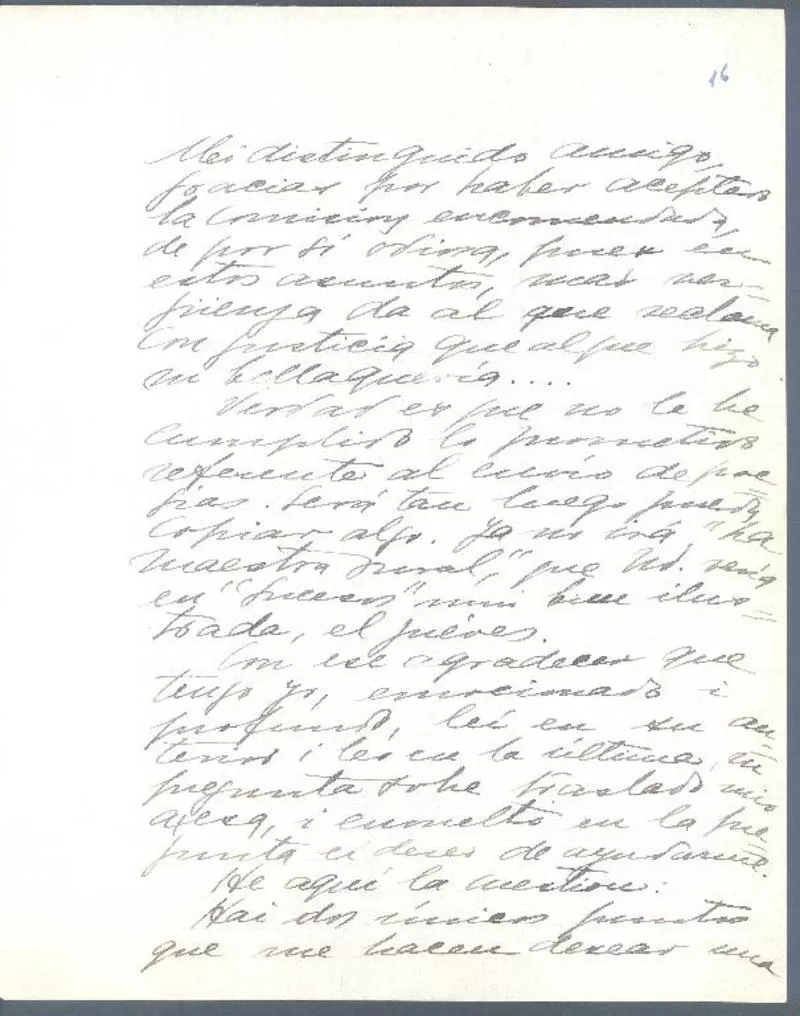 16
Mi distinguido amigo,
gracias por haber aceptado
la comision encomendada,
de por sí odiosa, pues en
estos asuntos, más ver-
güenza da al que reclama
con justicia que al que hizo
su bellaquería....
Verdad es que no le he
cumplido lo prometido
referente al envío de poe=
sías. Será tan luego pueda
copiar algo. Ya no irá "La
Maestra Rural," que Ud. verá
en "Sucesos" mui bien ilus=
trada, el juéves.
Con ese agradecer que
tengo yo, emocionado i
profundo, leí en su an
terior i leo en la última, su
pregunta sobre traslado mio
a esa, i envuelto en la pre
gunta el deseo de ayudarme.
He aquí la cuestion:
Hai dos únicos puntos
que me hacen desear una